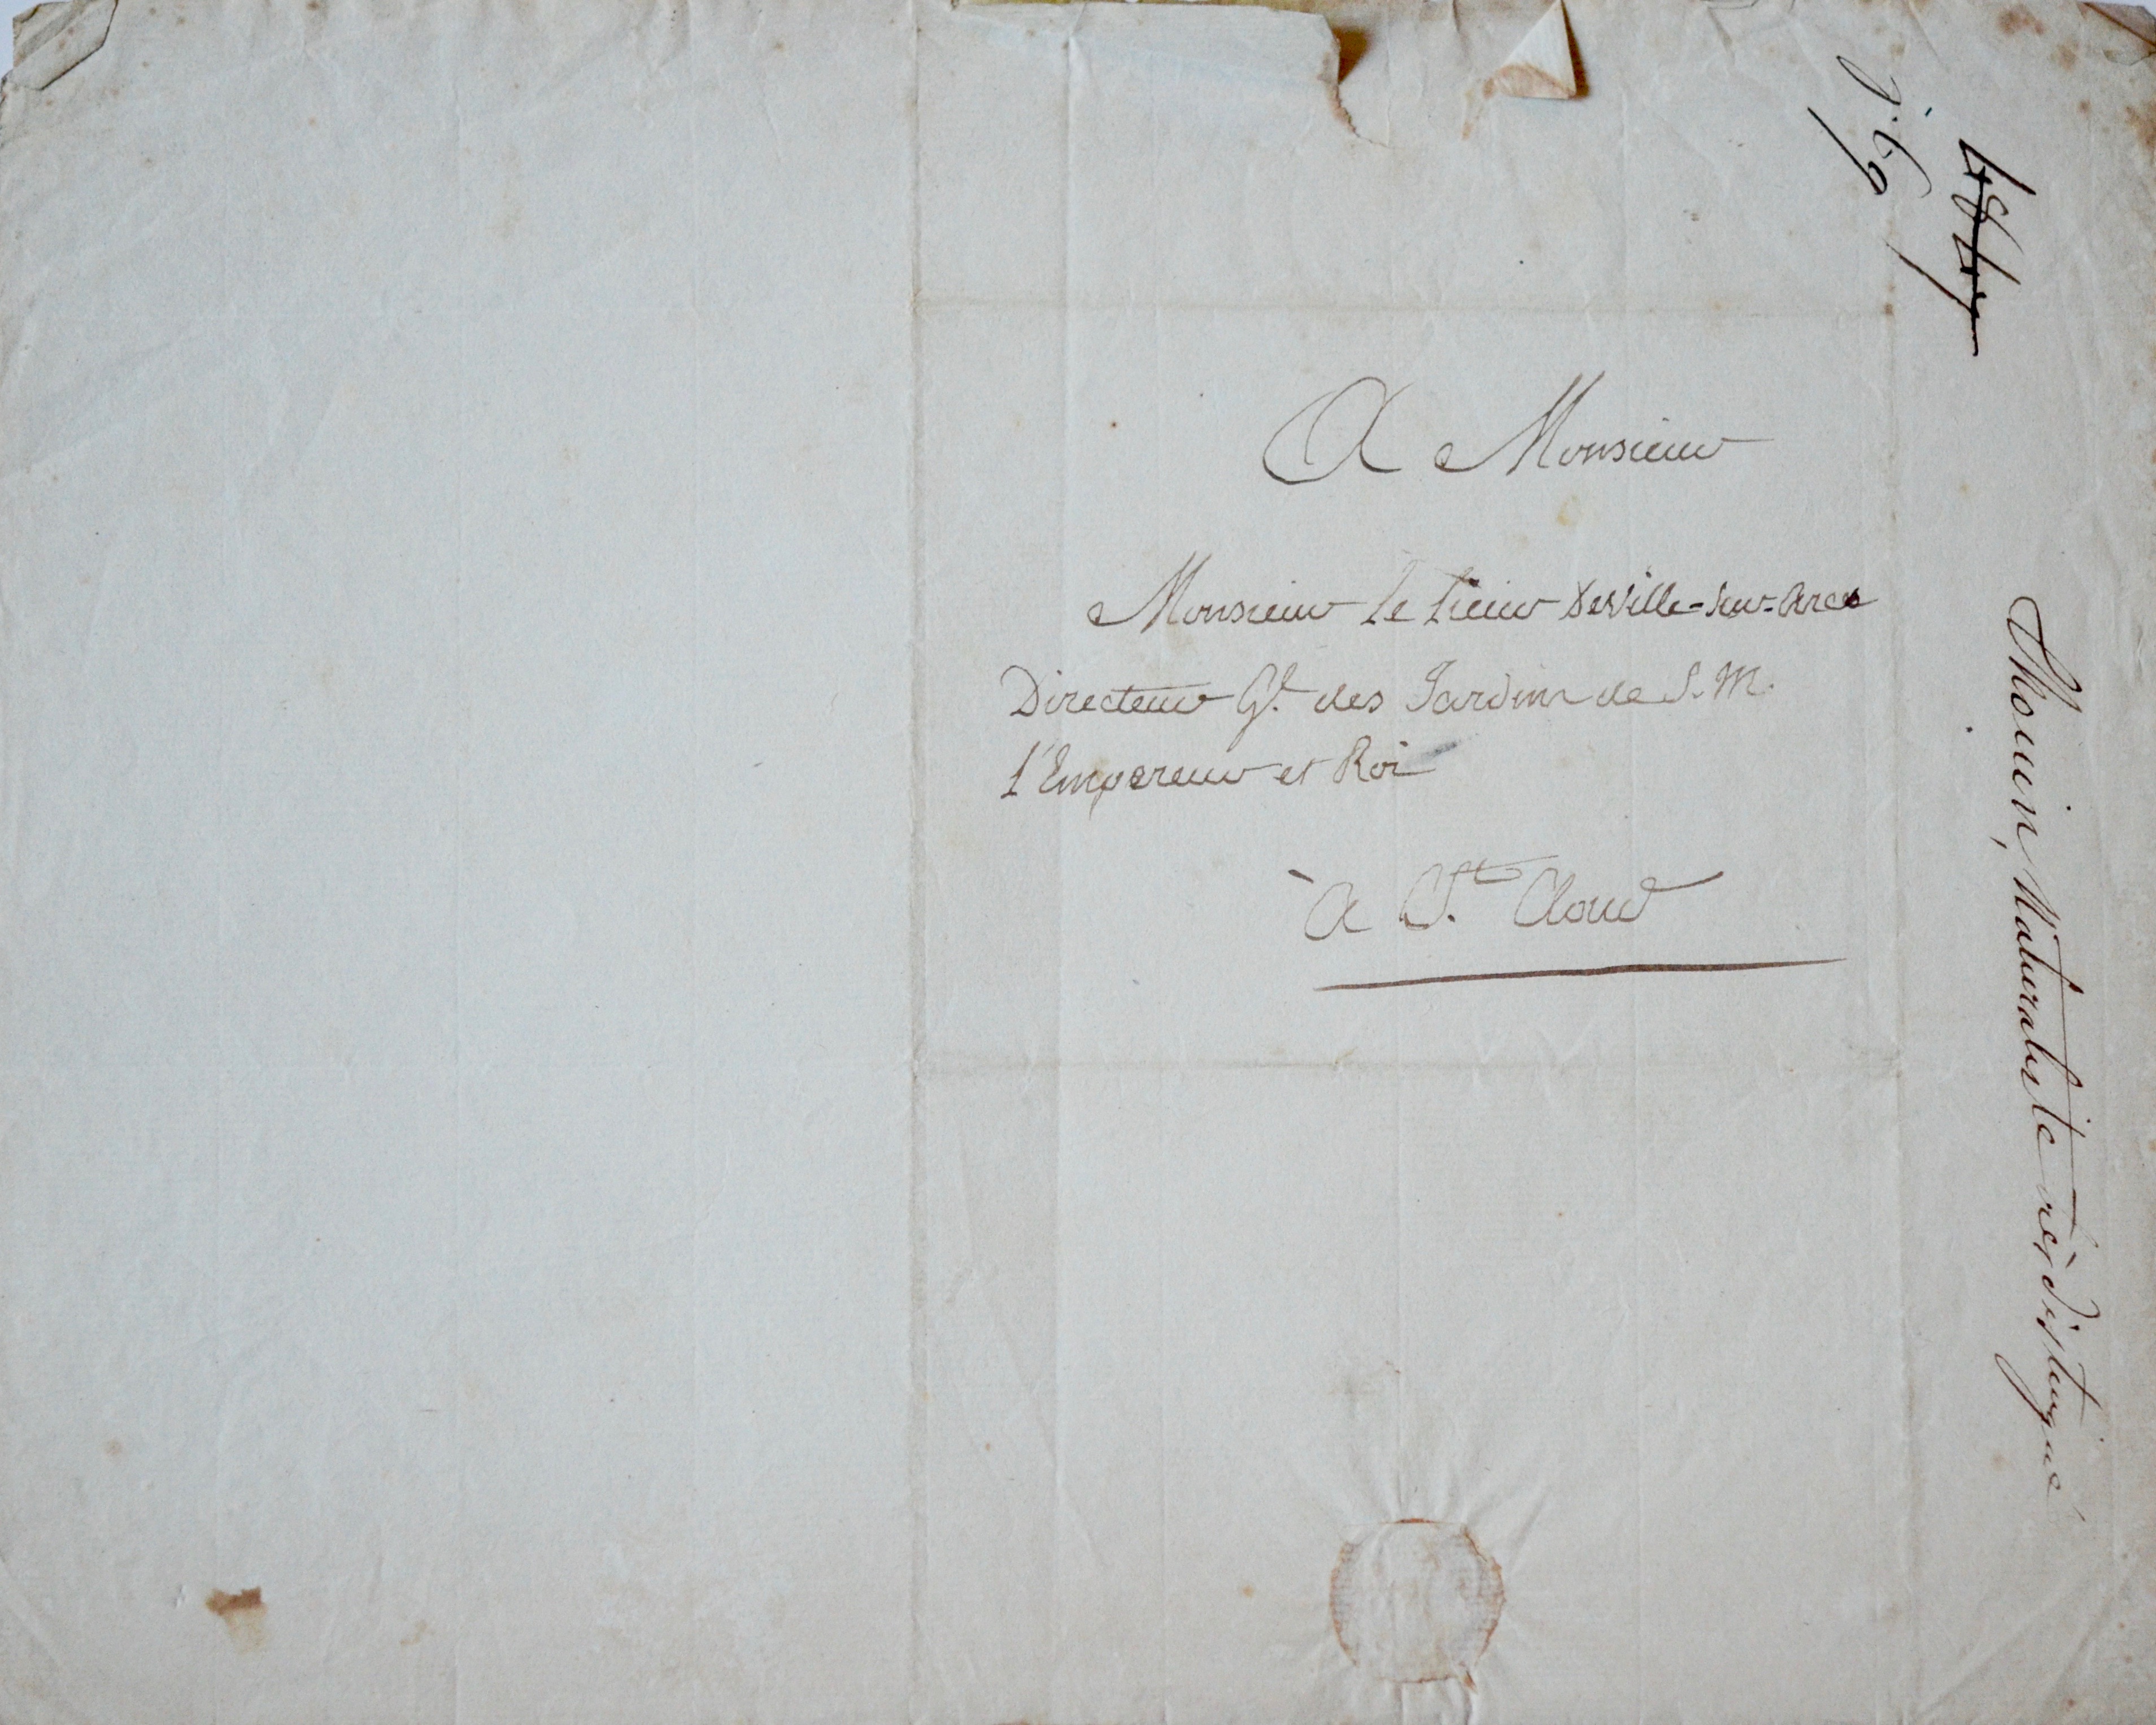 A Monsieur
Monsieur le lieur deville-sur-arce
Directeur G.l des Jardins de S. M.
l'Empereur et Roi
à S.t Cloud
Thouin, Naturaliste très distingué